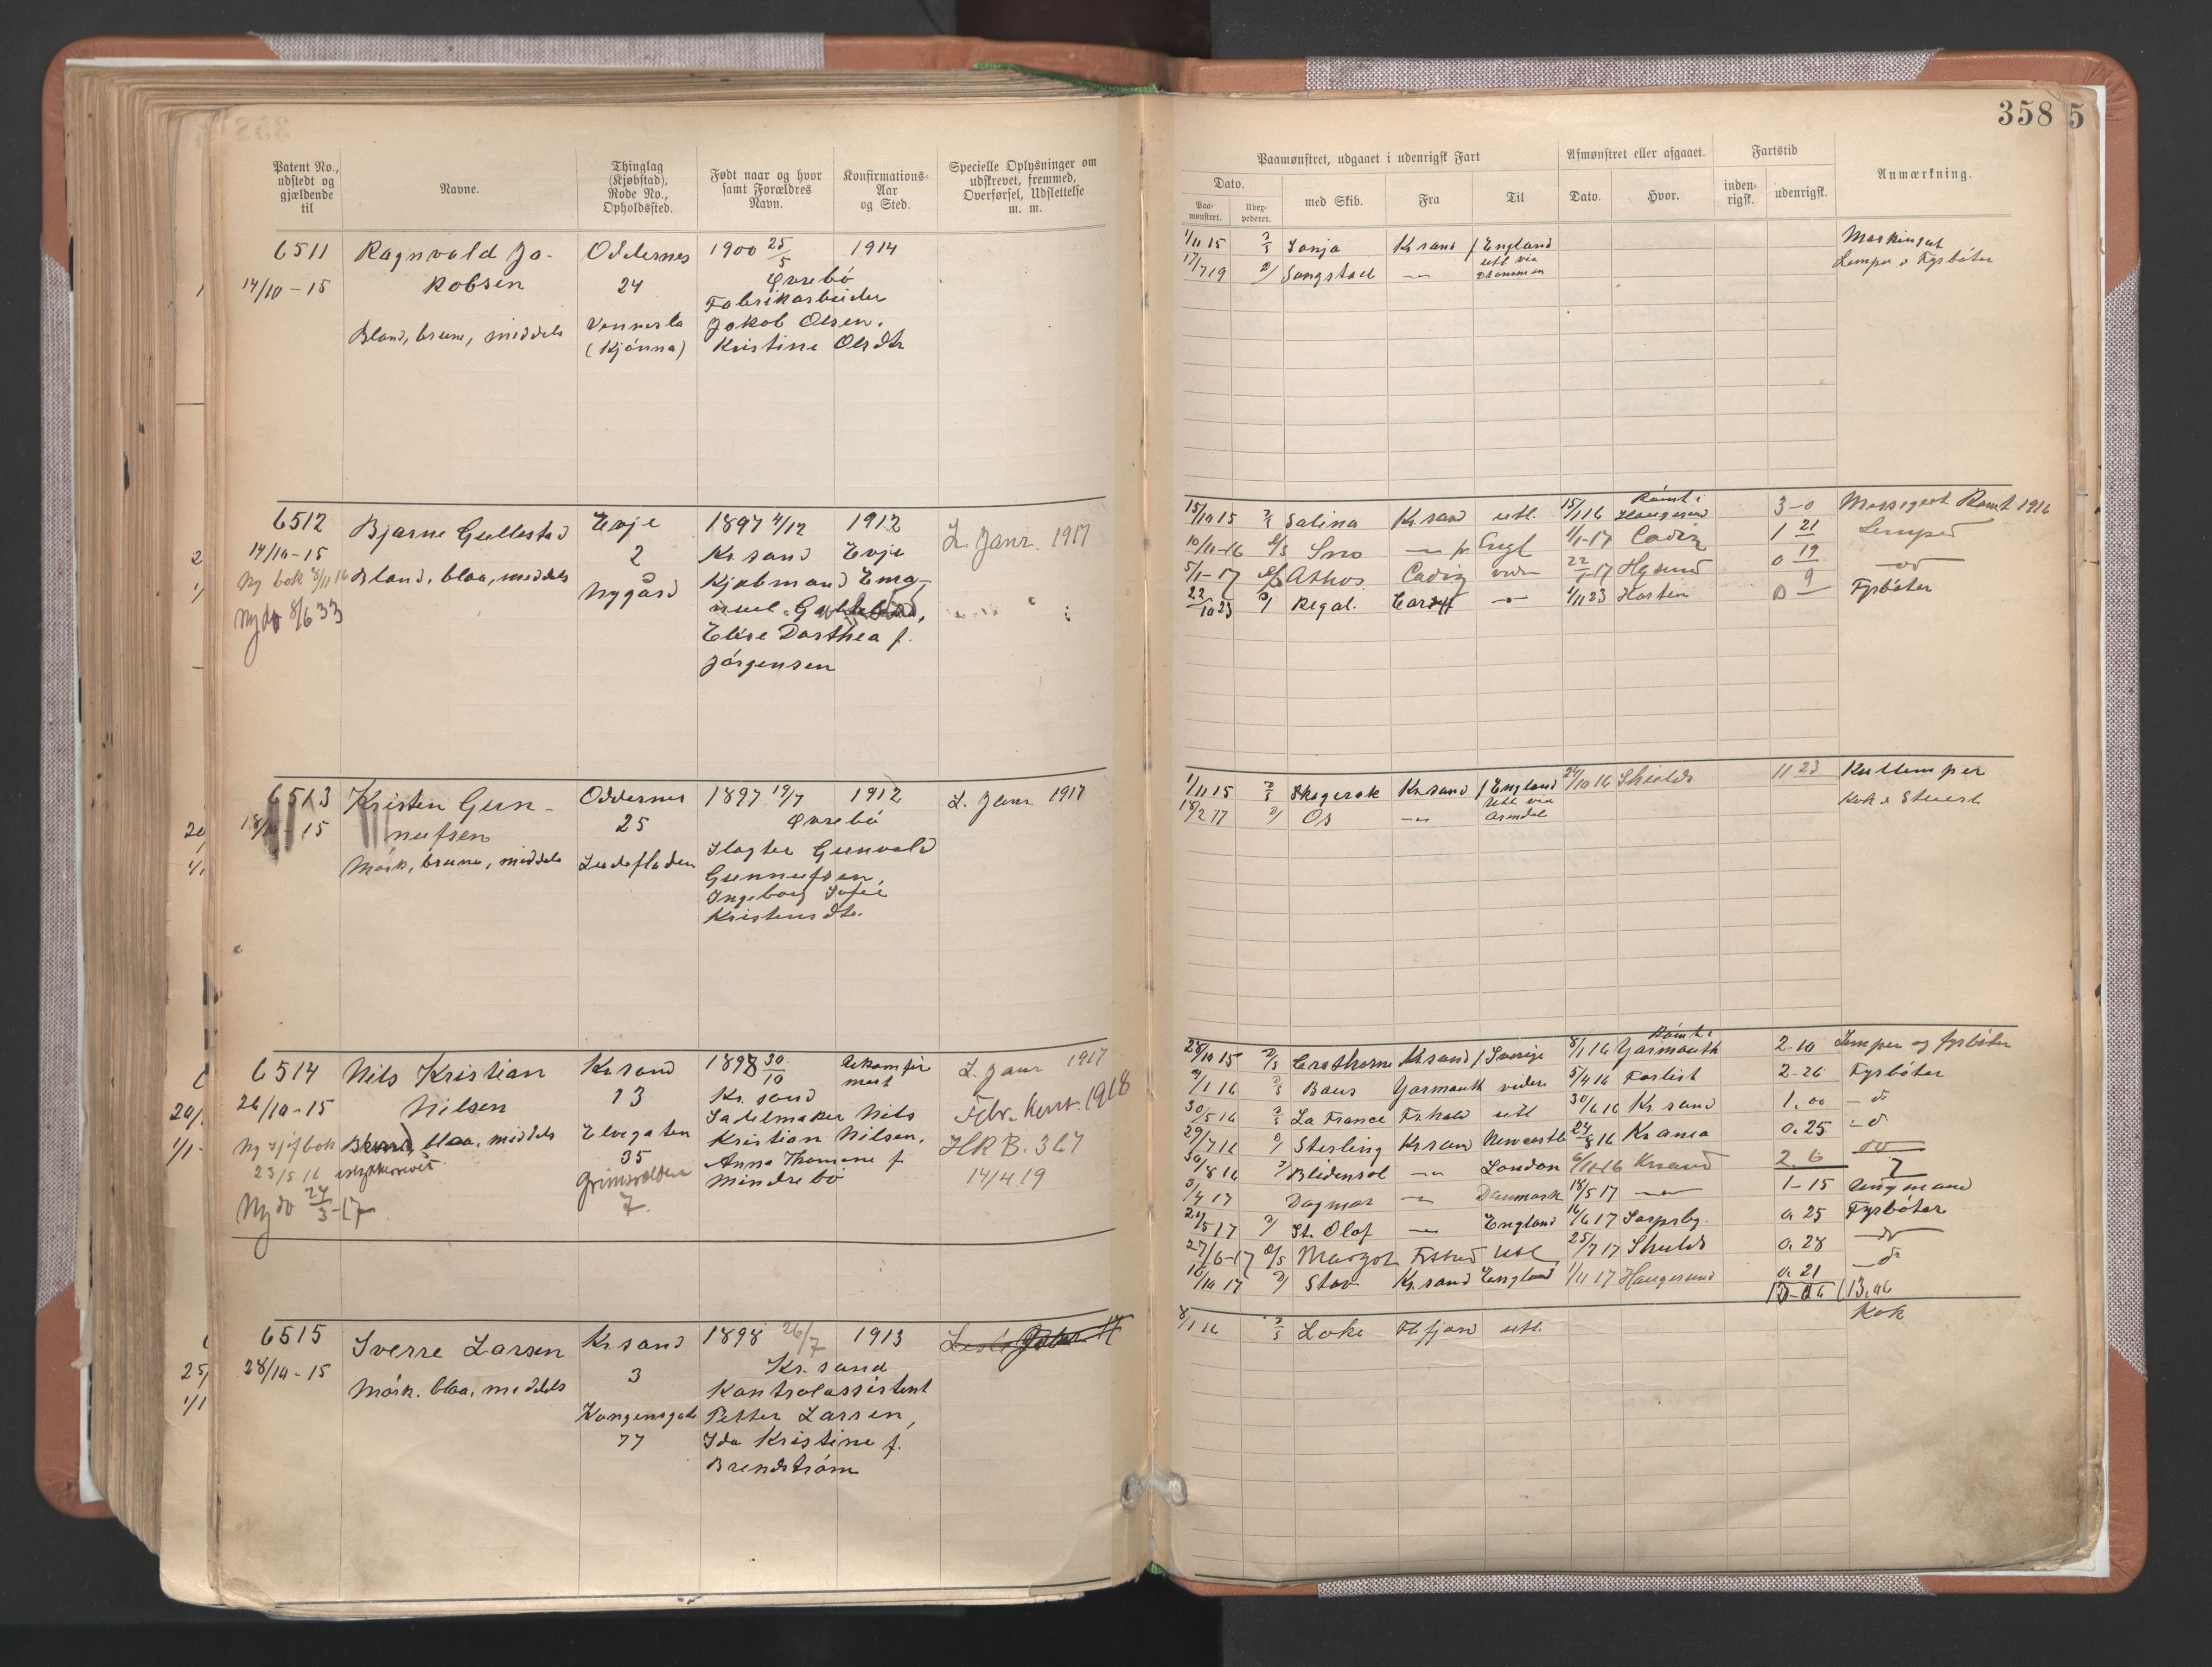 358 5
Patent No., udstedt og gjældende til
Navne.
Thinglag (Kjøbstad), Rode No., Opholdssted.
Født naar og hvor samt Forældres Navn.
Konfirmations-Aar og Sted.
Specielle Oplysninger om udskrevet, fremmed, Overførsel, Udslettelse m. m.
Paamønstret, udgaaet i udenrigsk Fart
Afmønstret eller afgaaet.
Fartstid
Anmærkning.
Dato.
Paa-mønstret.
Udex-pederet.
med Skib.
Fra
Til
Dato.
Hvor.
inden-rigsk.
udenrigsk.
6511 Ragnvald Ja- Oddernes 1900 25/5 1914
14/10-15 kobsen 24 Øvrebö
Fabrikarbeider
Bland, brune, middels Vennesla Jakob Olsen,
(Kjönna) Kristine Olsdtr
1/11 15 D/S Sonja Kr.sand / England
17/7 19 D/ Songstad -"- utl via Drammen
Lemper o Fyrböter
6512 Bjarne Gullestad Evje 1897 4/12 1912 L. Janr. 1917
14/10-15 2 Kr.sand Evje
Ny bok 8/11 16 Bland, blaa, middels Nygård Kjøbmand Ema-
Ny do 8/6 33 nuel
Elise Dorthea f.
Jörgensen
15/10 15 D/S Salina Kr.sand utl. 15/1 16 Römt i Haugesund 3-0 Messegut Römt 1916
10/11-16 D/S Sno -"- pr Engl 4/1-17 Cadiz 1 21 Lemper
5/1-17 Athos Cadiz 22/1-17 0 19 -do-
22/10 23 D/ Regal. Cardiff -"- 1/11 23 0 9 Fyrböter
6513 Kristen Gun- Oddernes 1897 19/7 1912 L. Janr 1917
18/10-15 nufsen 25 Øvrebö
Mörk, brune, middels Slagter Gunvald
Gunnufsen,
Ingeborg Sofie
Kristensdtr.
1/11 15 D/S Skagerak Kr.sand / England 24/10 16 Shields 11 23 Kullemper
18/2 17 D/ Os -"- utl via Arendal Kok o Stuert
6514 Nils Kristian Kr.sand 1898 30/10 L. Janr 1917
26/10-15 Nilsen 13 Kr.sand Febr. 1918
Sadelmaker Nils
Ny sjöfbok blaa, middels Elvegaten Kristian Nilsen, HRB. 367
23/5 16 35 Anna Thomine f 14/4 19
Ny do 24/3-17 7. Mindrebö
28/10 15 D/S Kr.sand / Sverige 8/1 16 Römt i Yarmouth 2-10 Lemper og fyrböter
9/1 16 D/S Baus Yarmouth videre 5/4 16 2-26 Fyrböter
30/5 16 D/S La France Fr.hald utl 30/6 16 Kr.sand 1.00 -d
29/7 16 D/ Sterling Kr.sand Newcastle 24/8 16 Kr.ania 0.25 -d
30/8 16 D/ -"- London 6/11-16 Kr.sand 2. 6 do
3/4 17 Dagmar -"- Danmark 18/5 17 -"- 1-15 Ungmand
21/5 17 D/ St. Olaf -"- England 16/6 17 Sarpsbg. 0.25 Fyrböter
27/6-17 D/S Margot Utl 25/7 17 Shields 0.28 -do
10/10 17 D/ Stav Kr.sand England 1/11 17 Haugesund 0.21 -d
13.06
6515 Sverre Larsen Kr.sand 1898 26/7 1913
28/10-15 3 Kr.sand
Mörk. blaa, middels Kontrolassistent
Kongensgate Petter Larsen,
77 Ida Kristine f.
Brendström
8/1 16 D/S Loke utl. Kok